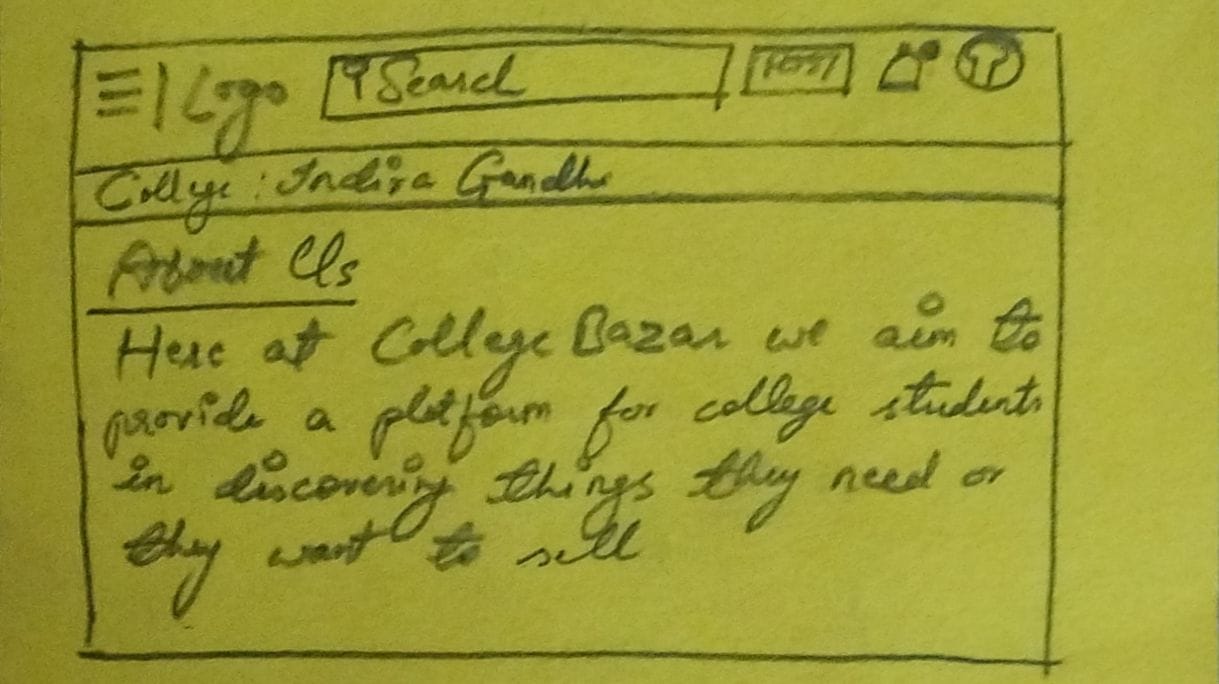 Logo Search POST
College : Indira Gandhi
About Us
Here at College Bazar we aim to
provide a platform for college students
in discovering things they need or
they want to sell